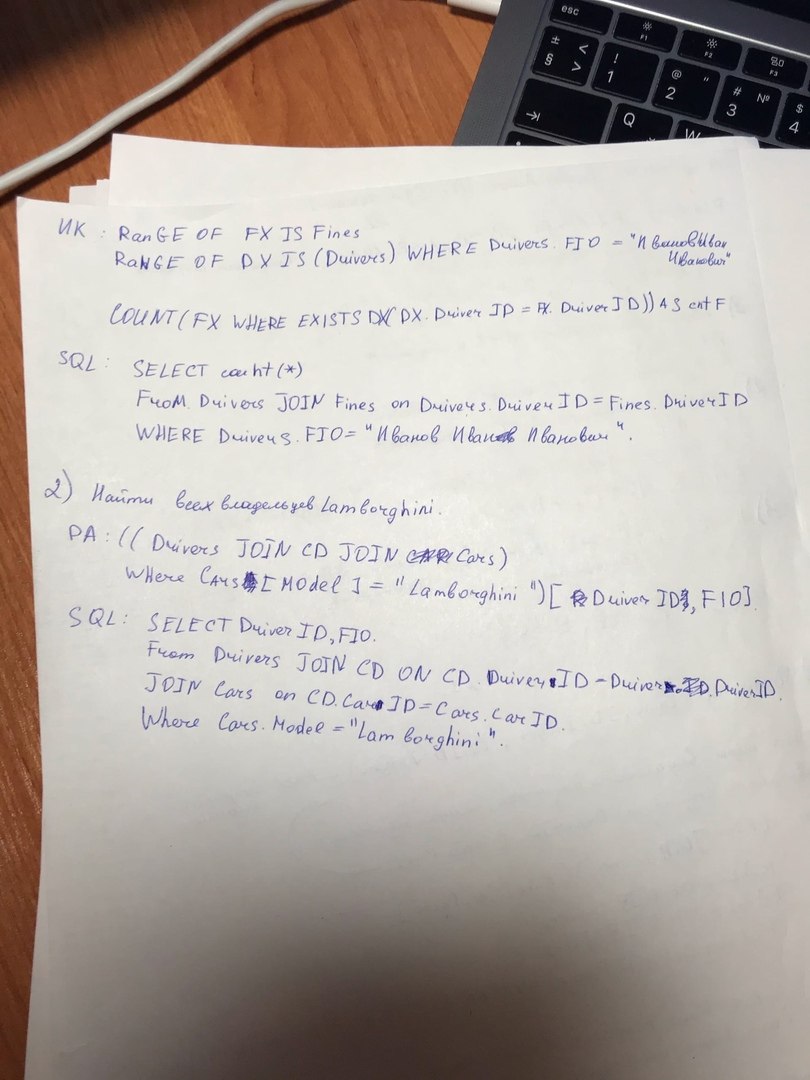 esc
F1
F2
F3
±
§
<
>
!
1
@
"
2
#
№
3
$
4
Q
W
ИК : RanGE OF FX IS Fines
RaNGE OF DX IS (Drivers) WHERE Drivers. FIO = "Иванов Иван
Иванович"
COUNT(FX WHERE EXISTS DX(DX. Driver ID = FX. Driver ID)) AS cntF
SQL: SELECT count (*)
FroM Drivers JOIN Fines on Drivers. Driver ID = Fines. Driver ID
WHERE Drivers. FIO= "Иванов Иван Иванович".
2) Найти всех владельцев Lamborghini.
РА: (( Drivers JOIN CD JOIN Cars)
Where Cars [Model] = "Lamborghini")[Driver ID, FIO].
SQL: SELECT Driver ID, FIO.
From Drivers JOIN CD ON CD. Driver ID = Driver. Driver ID.
JOIN Cars on CD. Car ID = Cars. Car ID.
Where Cars. Model = "Lamborghini".